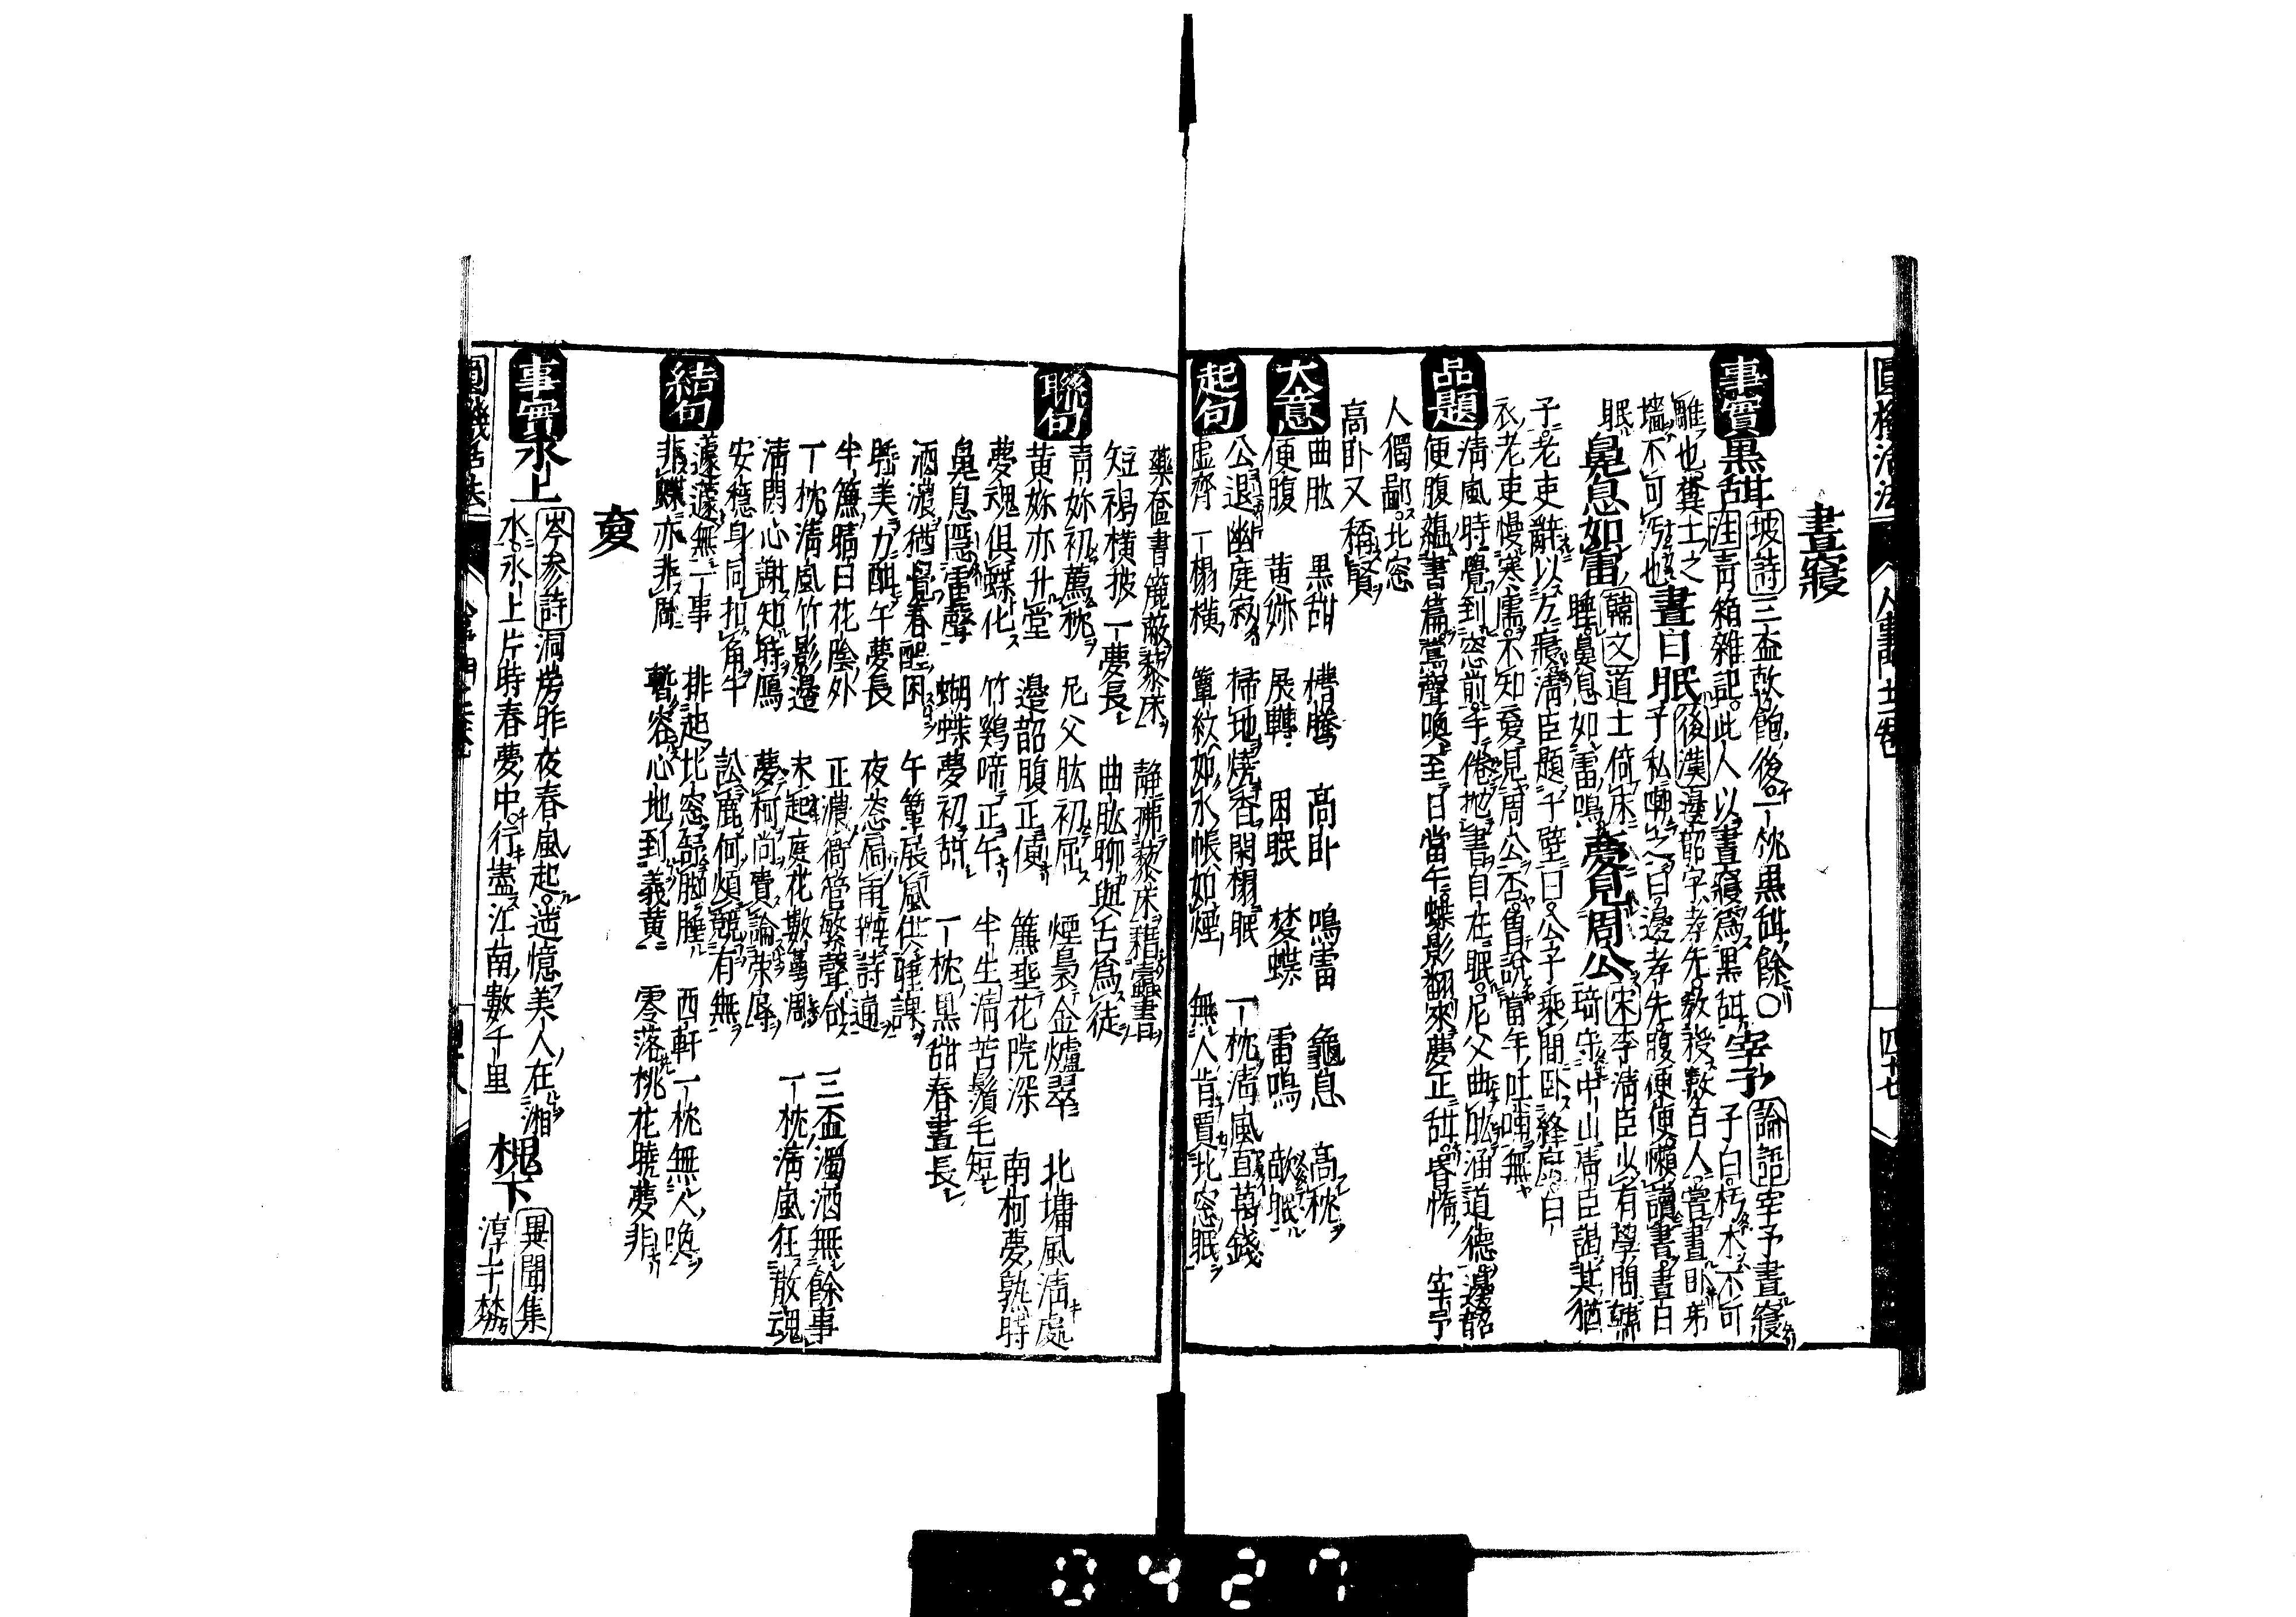 圓機活法 人事門 十一卷 四十七
晝寢
事實 黒甜 坡詩 三盃軟飽後一枕黒甜餘〇 宰予 論語 宰予晝寢
注青箱雜記此人以晝寢爲黒甜 子曰朽木不可
雕也糞土之 後漢 邊韶字孝先教授數百人嘗晝卧弟
墻不可杇也 晝日眠 子私嘲之曰邊孝先腹便便懶讀書晝日
眠 鼻息如雷 韓文 道士倚床 夢見周公 宋 李清臣少有學問韓
睡鼻息如雷鳴 琦守中山清臣謁其猶
子老吏辭以方寢清臣題于壁曰公子乘間卧絳
衣老吏慢寒儒不知夢見周公否曾說當年吐哺無
品題 清風時覺到窓前手倦抛書自在眠尼父曲肱涵道德邊韶
便腹蘊書篇鶯聲喚至日當午蝶影翻來夢正甜昏惰 宰予
人獨鄙北窓
高卧又稱賢
大意 曲肱 黒甜 懵騰 高卧 鳴雷 龜息 高枕
便腹 黄妳 展轉 困眠 梦蝶 雷鳴 欹眠
起句 公退幽庭寂 掃地燒香閑榻眠 一枕清風直萬錢
虚齋一榻横 簟紋如水帳如煙 無人肯買北窓眠
藥奩書簏敝藜床 靜拂藜床藉蠹書
短褐横披一夢長 曲肱聊與古爲徒
聯句 青妳初薦枕 尼父肱初屈 煙裊金爐翠 北墉風清處
黄妳亦升堂 邊韶腹正便 簾垂花院深 南柯夢熟時
夢魂俱蝶化 竹鷄啼正午 半生清苦鬚毛短
鼻息隱雷聲 蝴蝶夢初甜 一枕黒甜春晝長
酒濃猶覺春酲困 午簟展風供睡課
睡美力酣午夢長 夜窓扃雨辦詩逋
半簾晴日花陰外 正濃衙管繁聲 三盃濁酒無餘事
一枕清風竹影邊 未起庭花數萼凋 一枕清風狂散魂
清閑心謝知時鴈 夢柯尚費論榮辱
安穩身同扣角牛 訟鹿何煩競有無
結句 蘧蘧無二事 排起北窓舒脚睡 西軒一枕無人喚
非蝶亦非周 暫容心地到羲黄 零落桃花曉夢非
夢
事實 水上 岑參詩 洞房昨夜春風起遥憶美人在湘 槐下 異聞集
水水上片時春夢中行盡江南數千里 淳于棼
圓機活法